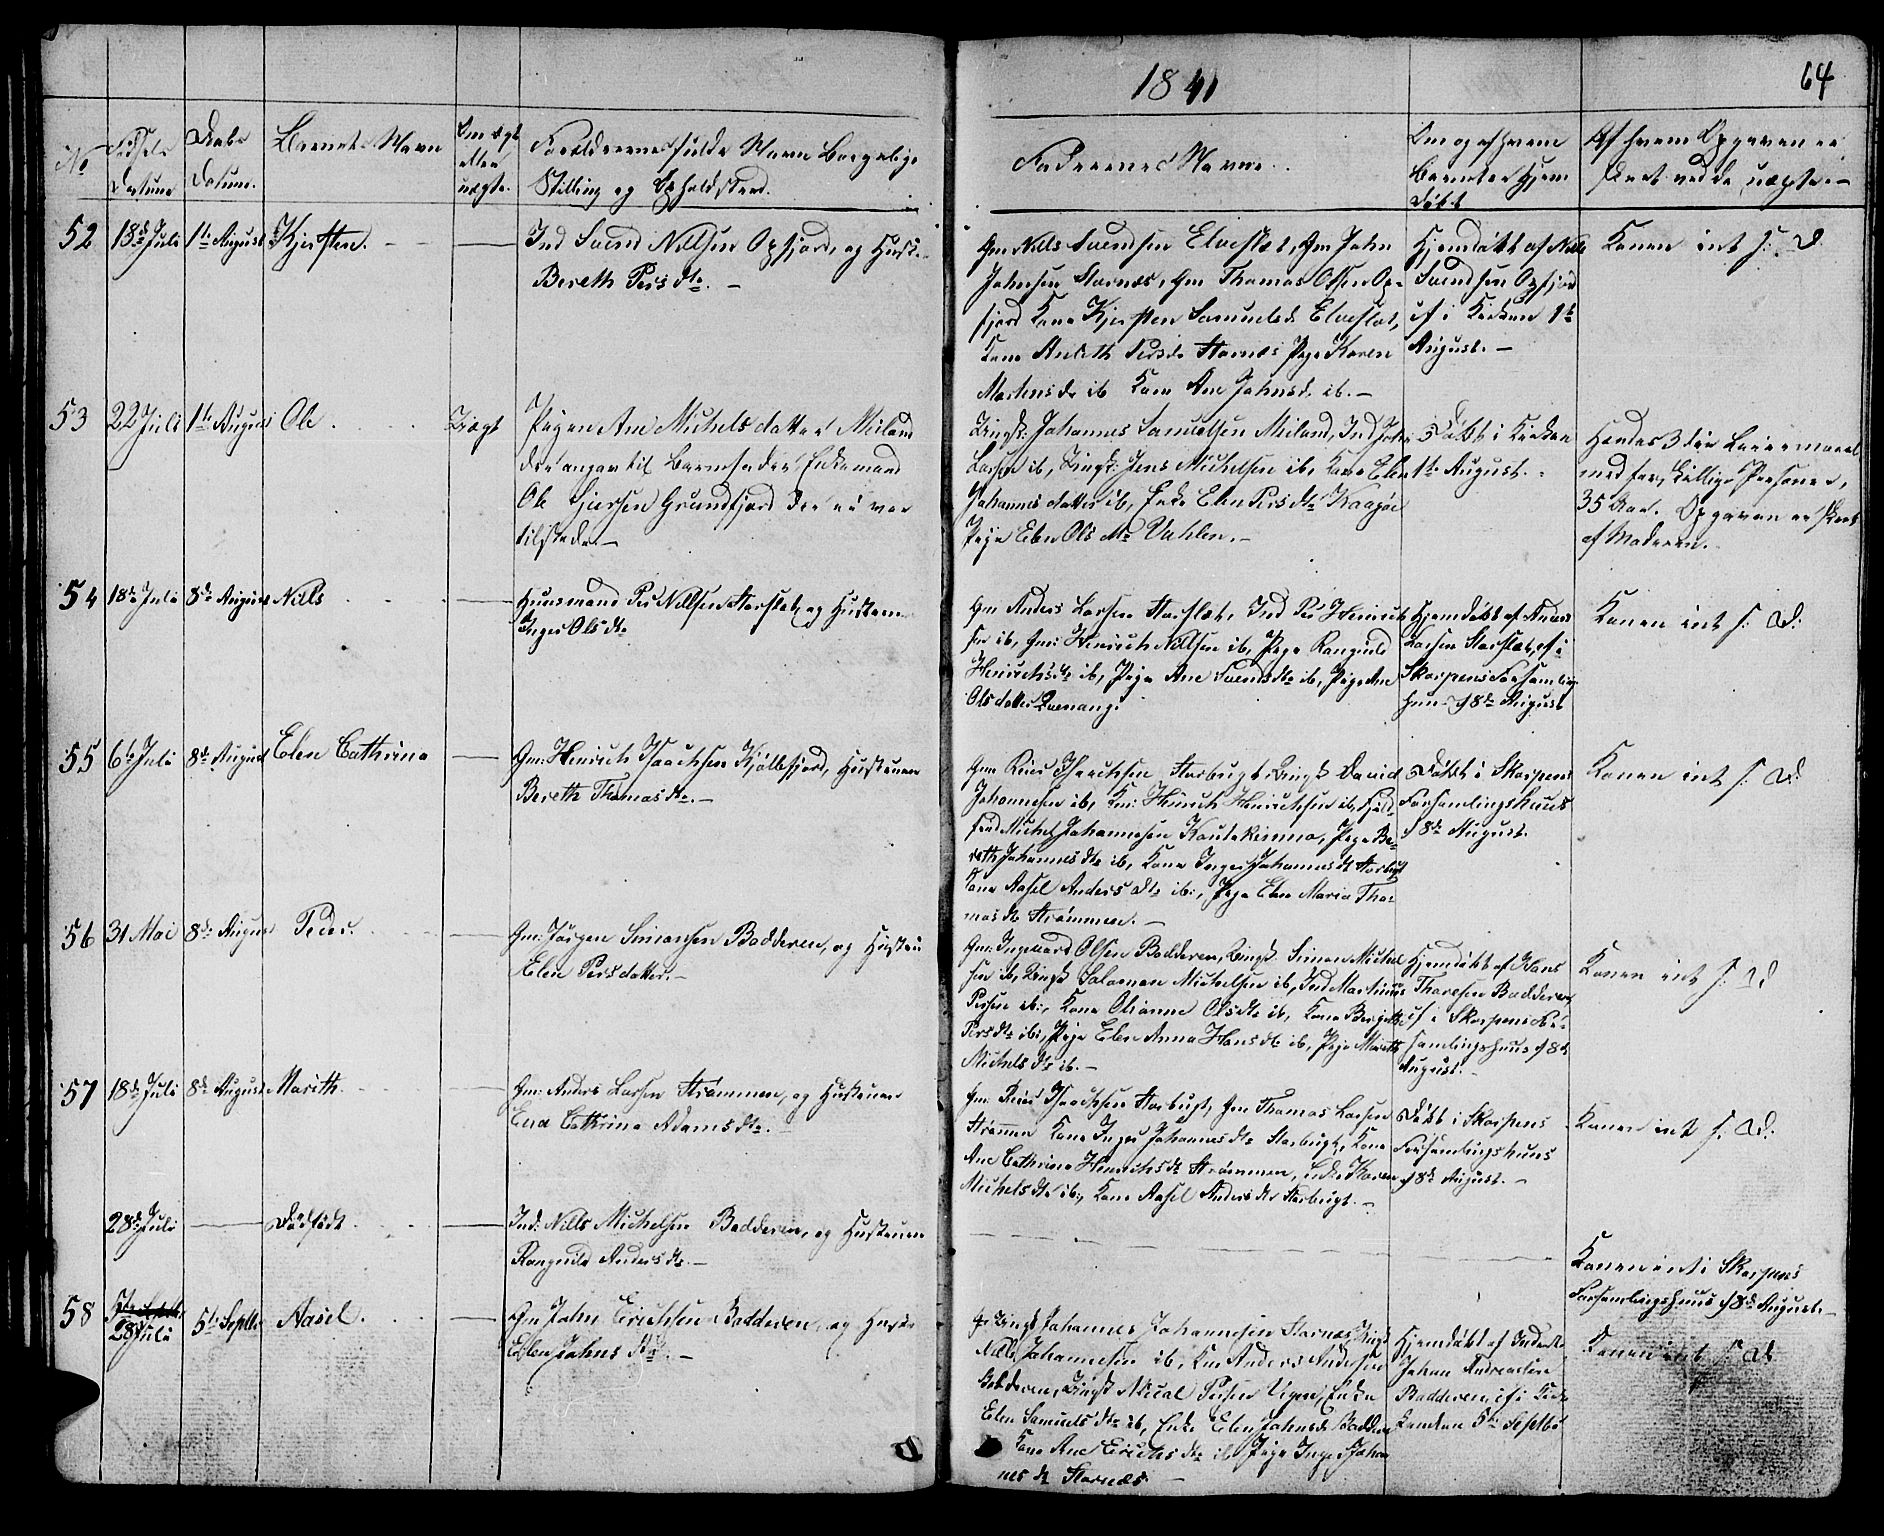 1841
64
No
Fødsels
Datum
Daabs
Datum.
Barnets Navn
Om ægte
eller
uægte.
Forældrenes fulde Navn Borgelige
Stilling og Opholdsted.
Faddernes Navne.
Om og af hvem
Barnet er Hjem
døbt
Af hvem Opgaven er
skeet ved de uægte
52
18de Juli
1te August
Kjersten.
Ind Svend Nilsen Opfjord, og Hust.
Bereth Persdtr. —
Gm Nils Svendsen Elveslet, Gm John
Johnsen Stornæs, Gm Thomas Olsen Op-
fjord Kone Kjersten Samuelsd. Elveslet,
Kone Anbeth Persdr Stornæs Pige Karen
Mortensdr ib Kone Ane Johnsd. ib. —
Hjemdøbt af Nils
Svendsen Opfjord
cf i Kirken 1te
August. —
Konen int s: D.
53
22 Juli
1te August
Ole
Uægt
Pigen Ane Michelsdatter Meiland
der angav til Barnefader Enkemand
Ole Sjursen Grundfjord der ei var
tilstede. —
Ungk. Johannes Samuelsen Meiland, Ind Peder
Larsen ib, Ungk. Jens Michelsen ib, Kone Elen
Johannesdatter ib, Enke Elen Persdtr Kaagøe
Pige Elen Olsdtr Vahlen. —
Døbt i Kirken
1te August.
Hendes 3die Leiermaal
med forskjellige Personer,
35 Aar. Opgaven er skeet
af Moderen.
54
18de Juli
8de August
Nils
Huusmand Per Nilsen Storslet, og Hustruen
Inger Olsdtr
Gm Anders Larsen Storslet, Ind Per Henrich
sen ib, Gm: Henrich Nilsen ib, Pige Rangnild
Henrichsdtr ib, Pige Ane Svendsdtr ib, Pige Ane
Olsdatter Qvenang.
Hjemdøbt af Anders
Larsen Storslet, cf i
Skorpens Forsamlings
huus 8de August
Konen int s: D:
55
6te Juli
8de August
Elen Cathrina
Gm: Henrich Isachsen Kjøllefjord, Hustruen
Bereth Thomasdtr. —
Gm Reier Isachsen Storbugt, Ungk David
Johannesen ib, Km: Henrich Henrichsen ib, Fjeld-
find Michel Johannesen Koutokeinno, Pige Be-
reth Johannesdtr ib, Kone Inger Johannesdtr Storbugt
Kone Aasel Andersdtr ib:, Pige Elen Maria Tho-
masdtr Strømmen. —
Døbt i Skorpens
Forsamlingshuus
8de August.
Konen int s: D:
56
31 Mai
8de August
Peder.
Gm: Jørgen Simonsen Badderen, og Hustru
Elen Persdatter. —
Gm: Ingevard Olsen Badderen, Ungk. Simon Michel
sen ib, Ungk Salamon Michelsen ib, Ind Martinus
Persen ib:, Kone Olianne Olsdtr ib, Kone Bergitte
Persdtr ib:, Pige Elen Anna Hansdtr ib, Pige Mareth
Michelsdtr ib. —
Hjemdøbt af Hans
Thoresen Badderen,
cf i Skorpens For-
samlingshuus 8de
August. —
Konen int s: D
57
18de Juli
8de August
Marith.
Gm: Anders Larsen Strømmen, og Hustruen
Eva Cathrina Adamsdtr.
Gm: Reier Isachsen Storbugt, Gm Thomas Larsen
Strømmen Kone Inger Johannesdtr Storbugt, Kone
Ane Cathrina Henrichsdtr Strømmen, Enke Karen
Michelsdtr ib:, Kone Aasel Andersdtr Storbugt. —
Døbt i Skorpens
Forsamlingshuus
8de August. —
Konen int s. D:
28de Juli
Dødfødt
Ind: Nils Michelsen Badderen, og Hustruen
Rangnild Andersdtr. —
Konen int i Skorpens
Forsamlingshuus 8de August. —
58
28de Juli
5te Septbr
Aasel.
Gm John Erichsen Badderen, og Hustr
Ellen Johnsdtr. —
Ungk Johannes Johannesen Stornæs, Ungk
Nils Johannesen ib, Km Anders Andersen
Badderen, Ungk Nicol Persen Vigen, Enke
Elen Samuelsdtr ib, Enke Elen Johnsd: Badderen
Kone Ane Erichsdtr ib Pige Inger Johan
nesdtr Stornæs. —
Hjemdøbt af Inderst
Johan Andreasen
Badderen, cf i Kir-
kenden 5te Septbr
Konen int s. D: